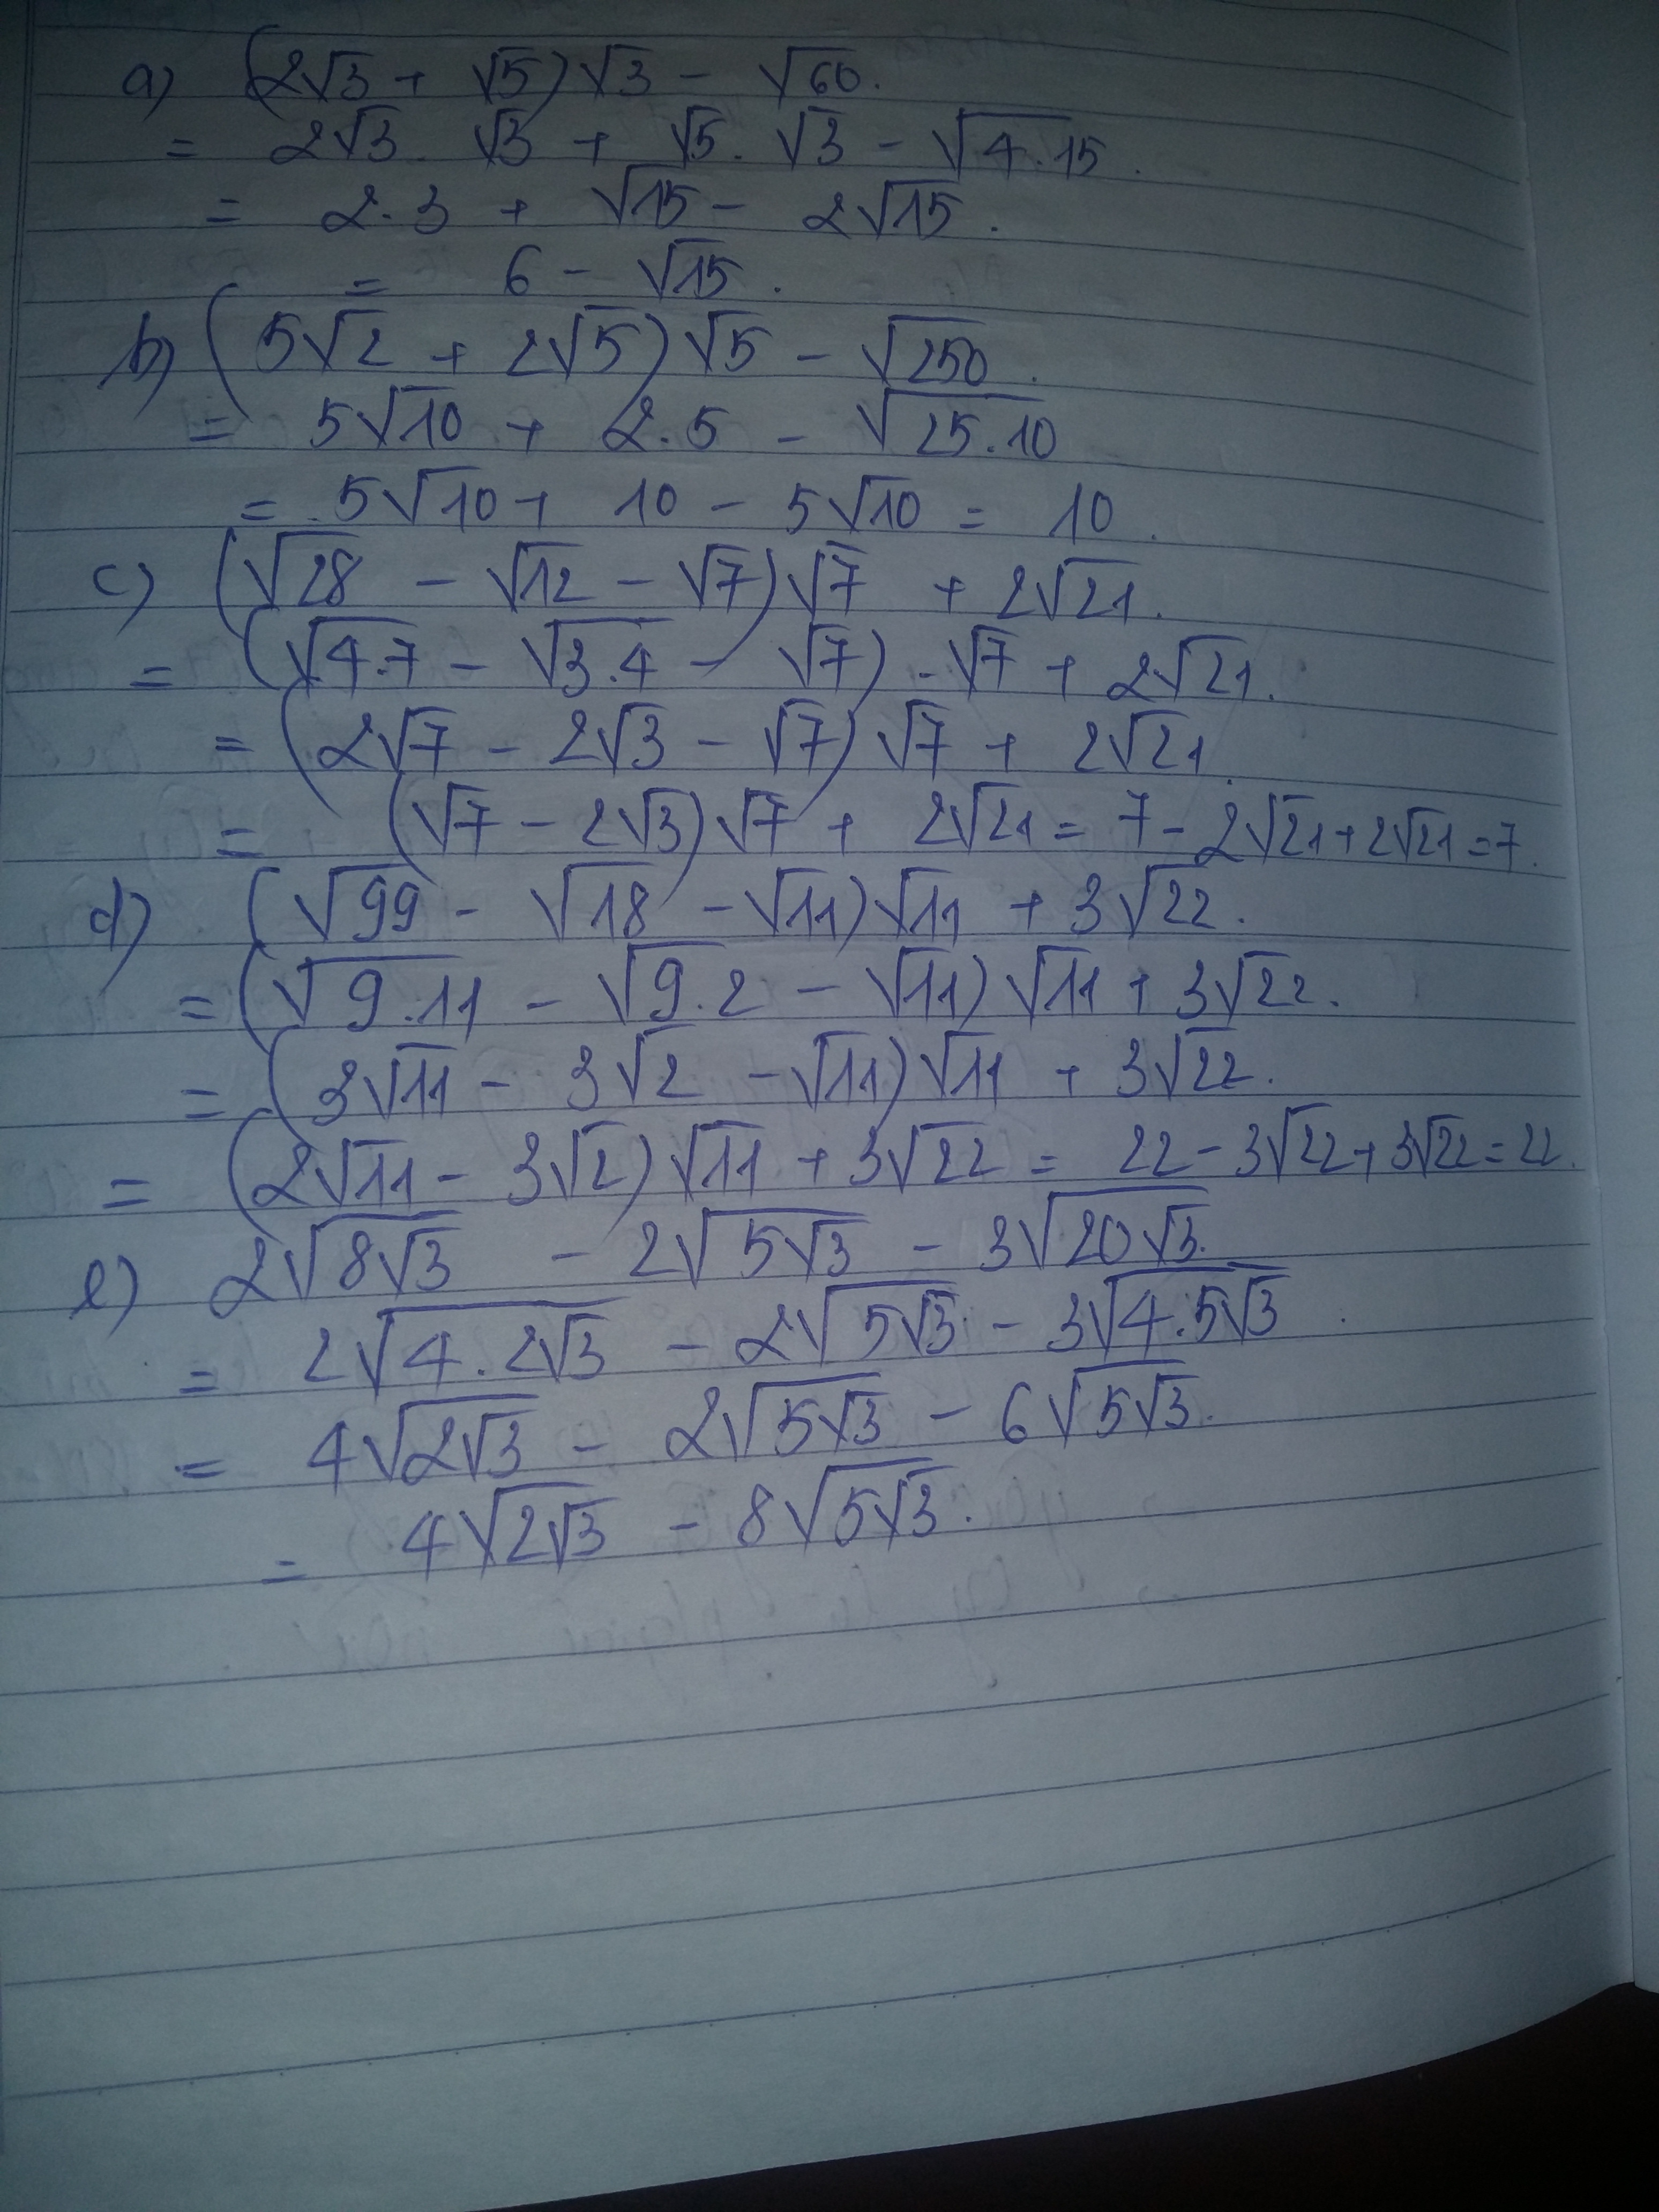 a) (2√3 + √5)√3 - √60.
= 2√3. √3 + √5. √3 - √4.15.
= 2.3 + √15 - 2√15.
= 6 - √15.
b) (5√2 + 2√5)√5 - √250.
= 5√10 + 2.5 - √25.10
= 5√10 + 10 - 5√10 = 10.
c) (√28 - √12 - √7)√7 + 2√21.
= (√4.7 - √3.4 - √7).√7 + 2√21.
= (2√7 - 2√3 - √7)√7 + 2√21.
= (√7 - 2√3)√7 + 2√21 = 7 - 2√21 + 2√21 = 7.
d) (√99 - √18 - √11)√11 + 3√22.
= (√9.11 - √9.2 - √11)√11 + 3√22.
= (3√11 - 3√2 - √11)√11 + 3√22.
= (2√11 - 3√2)√11 + 3√22 = 22 - 3√22 + 3√22 = 22.
e) 2√8√3 - 2√5√3 - 3√20√3.
= 2√4.2√3 - 2√5√3 - 3√4.5√3.
= 4√2√3 - 2√5√3 - 6√5√3.
= 4√2√3 - 8√5√3.